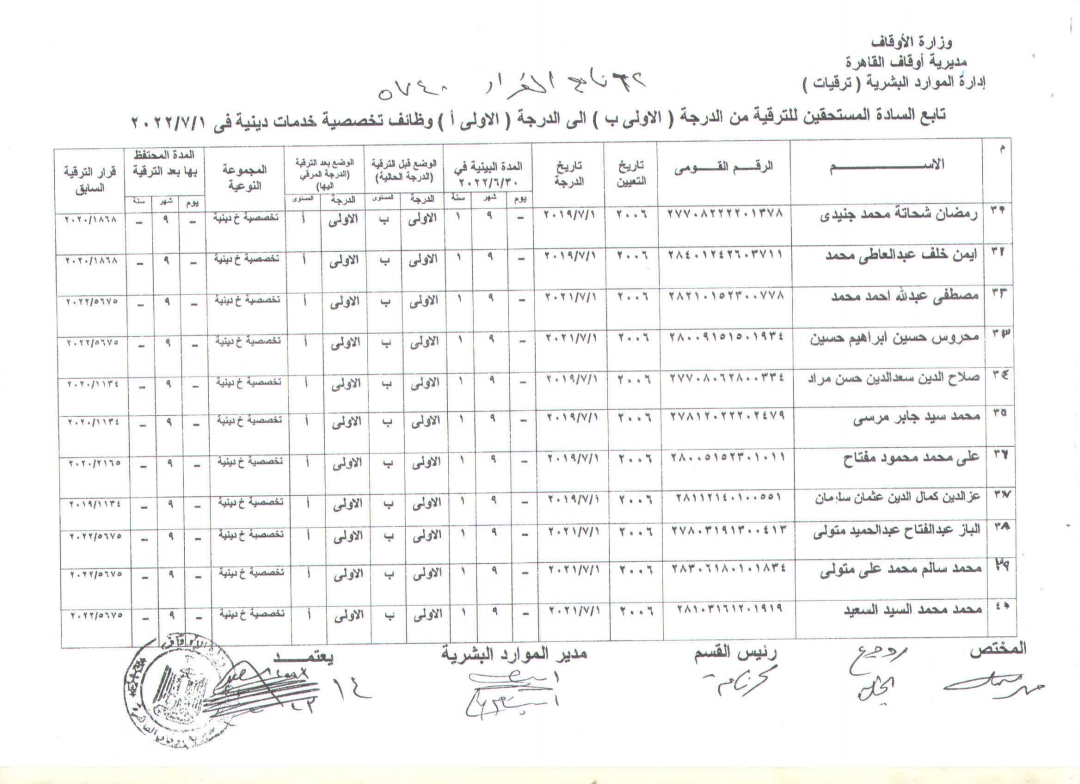 وزارة الأوقاف
مديرية أوقاف القاهرة
إدارة الموارد البشرية ( ترقيات )
تابع القرار ٥٧٤٠
تابع السادة المستحقين للترقية من الدرجة ( الاولى ب ) الى الدرجة ( الاولى أ ) وظائف تخصصية خدمات دينية فى ٢٠٢٢/٧/١
م الاســـــــــم الرقم القومى تاريخ التعيين تاريخ الدرجة المدة البينية في ٢٠٢٢/٦/٣٠ الوضع قبل الترقية (الدرجة الحالية) الوضع بعد الترقية (الدرجة المرقي اليها) المجموعة النوعية المدة المحتفظ بها بعد الترقية قرار الترقية السابق
يوم شهر سنة الدرجة المستوى الدرجة المستوى يوم شهر سنة
رمضان شحاتة محمد جنيدى ٢٧٧٠٨٢٢٢٢٠١٣٧٨ ٢٠٠٦ ٢٠١٩/٧/١ – ٩ ١ الاولى ب الاولى أ تخصصية خ دينية – ٩ – ٢٠٢٠/١٨٦٨
٣٢ ايمن خلف عبدالعاطى محمد ٢٨٤٠١٢٤٢٦٠٣٧١١ ٢٠٠٦ ٢٠١٩/٧/١ – ٩ ١ الاولى ب الاولى أ تخصصية خ دينية – ٩ – ٢٠٢٠/١٨٦٨
٣٣ مصطفى عبدالله احمد محمد ٢٨٢١٠١٥٢٣٠٠٧٧٨ ٢٠٠٦ ٢٠٢١/٧/١ – ٩ ١ الاولى ب الاولى أ تخصصية خ دينية – ٩ – ٢٠٢٢/٥٦٧٥
محروس حسين ابراهيم حسين ٢٨٠٠٩١٥١٥٠١٩٣٤ ٢٠٠٦ ٢٠٢١/٧/١ – ٩ ١ الاولى ب الاولى أ تخصصية خ دينية – ٩ – ٢٠٢٢/٥٦٧٥
٣٤ صلاح الدين سعدالدين حسن مراد ٢٧٧٠٨٠٦٢٨٠٠٣٣٤ ٢٠٠٦ ٢٠١٩/٧/١ – ٩ ١ الاولى ب الاولى أ تخصصية خ دينية – ٩ – ٢٠٢٠/١١٣٤
٣٥ محمد سيد جابر مرسى ٢٧٨١٢٠٢٢٢٠٢٤٧٩ ٢٠٠٦ ٢٠١٩/٧/١ – ٩ ١ الاولى ب الاولى أ تخصصية خ دينية – ٩ – ٢٠٢٠/١١٣٤
على محمد محمود مفتاح ٢٨٠٠٥١٥٢٣٠١٠١١ ٢٠٠٦ ٢٠١٩/٧/١ – ٩ ١ الاولى ب الاولى أ تخصصية خ دينية – ٩ – ٢٠٢٠/٢١٦٥
٣٧ عزالدين كمال الدين عثمان سليمان ٢٨١١٢١٤٠١٠٠٥٥١ ٢٠٠٦ ٢٠١٩/٧/١ – ٩ ١ الاولى ب الاولى أ تخصصية خ دينية – ٩ – ٢٠١٩/١١٣٤
٣٨ الباز عبدالفتاح عبدالحميد متولى ٢٧٨٠٣١٩١٣٠٠٤١٣ ٢٠٠٦ ٢٠٢١/٧/١ – ٩ ١ الاولى ب الاولى أ تخصصية خ دينية – ٩ – ٢٠٢٢/٥٦٧٥
٣٩ محمد سالم محمد على متولى ٢٨٣٠٦١٨٠١٠١٨٣٤ ٢٠٠٦ ٢٠٢١/٧/١ – ٩ ١ الاولى ب الاولى أ تخصصية خ دينية – ٩ – ٢٠٢٢/٥٦٧٥
٤٠ محمد محمد السيد السعيد ٢٨١٠٣١٦١٢٠١٩١٩ ٢٠٠٦ ٢٠٢١/٧/١ – ٩ ١ الاولى ب الاولى أ تخصصية خ دينية – ٩ – ٢٠٢٢/٥٦٧٥
المختص رئيس القسم مدير الموارد البشرية يعتمـــد